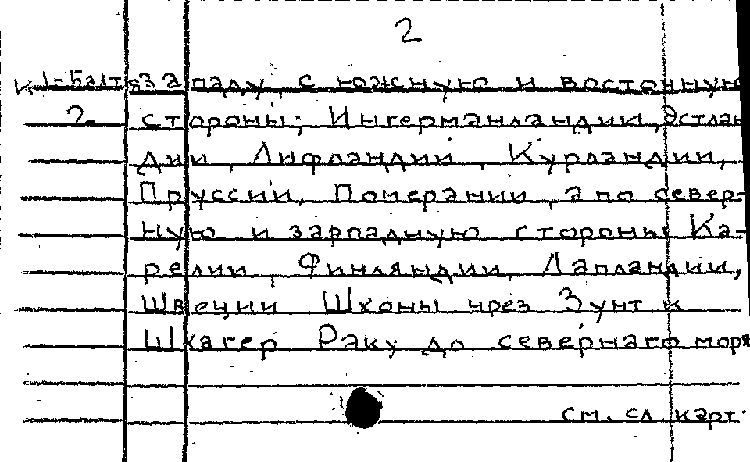 2
К 1-Балт западу, с южную и восточную
2. стороны; Ингерманландии, Эстлан
дии, Лифляндии, Курляндии,
Пруссии, Померании, а по север-
ную и зарпадную стороны Ка-
релии, Финляндии, Лапландии,
Швеции Шконы чрез Зунт и
Шкагер Раку до севернаго моря
см. сл. карт.